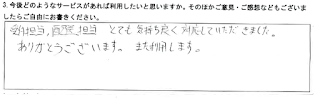 3. 今後どのようなサービスがあれば利用したいと思いますか。そのほかご意見・ご感想などもございま
したらご自由にお書きください。
受付担当，医院担当 とても 気持ち良く 対応していただきました。
ありがとうございます。 また利用します。